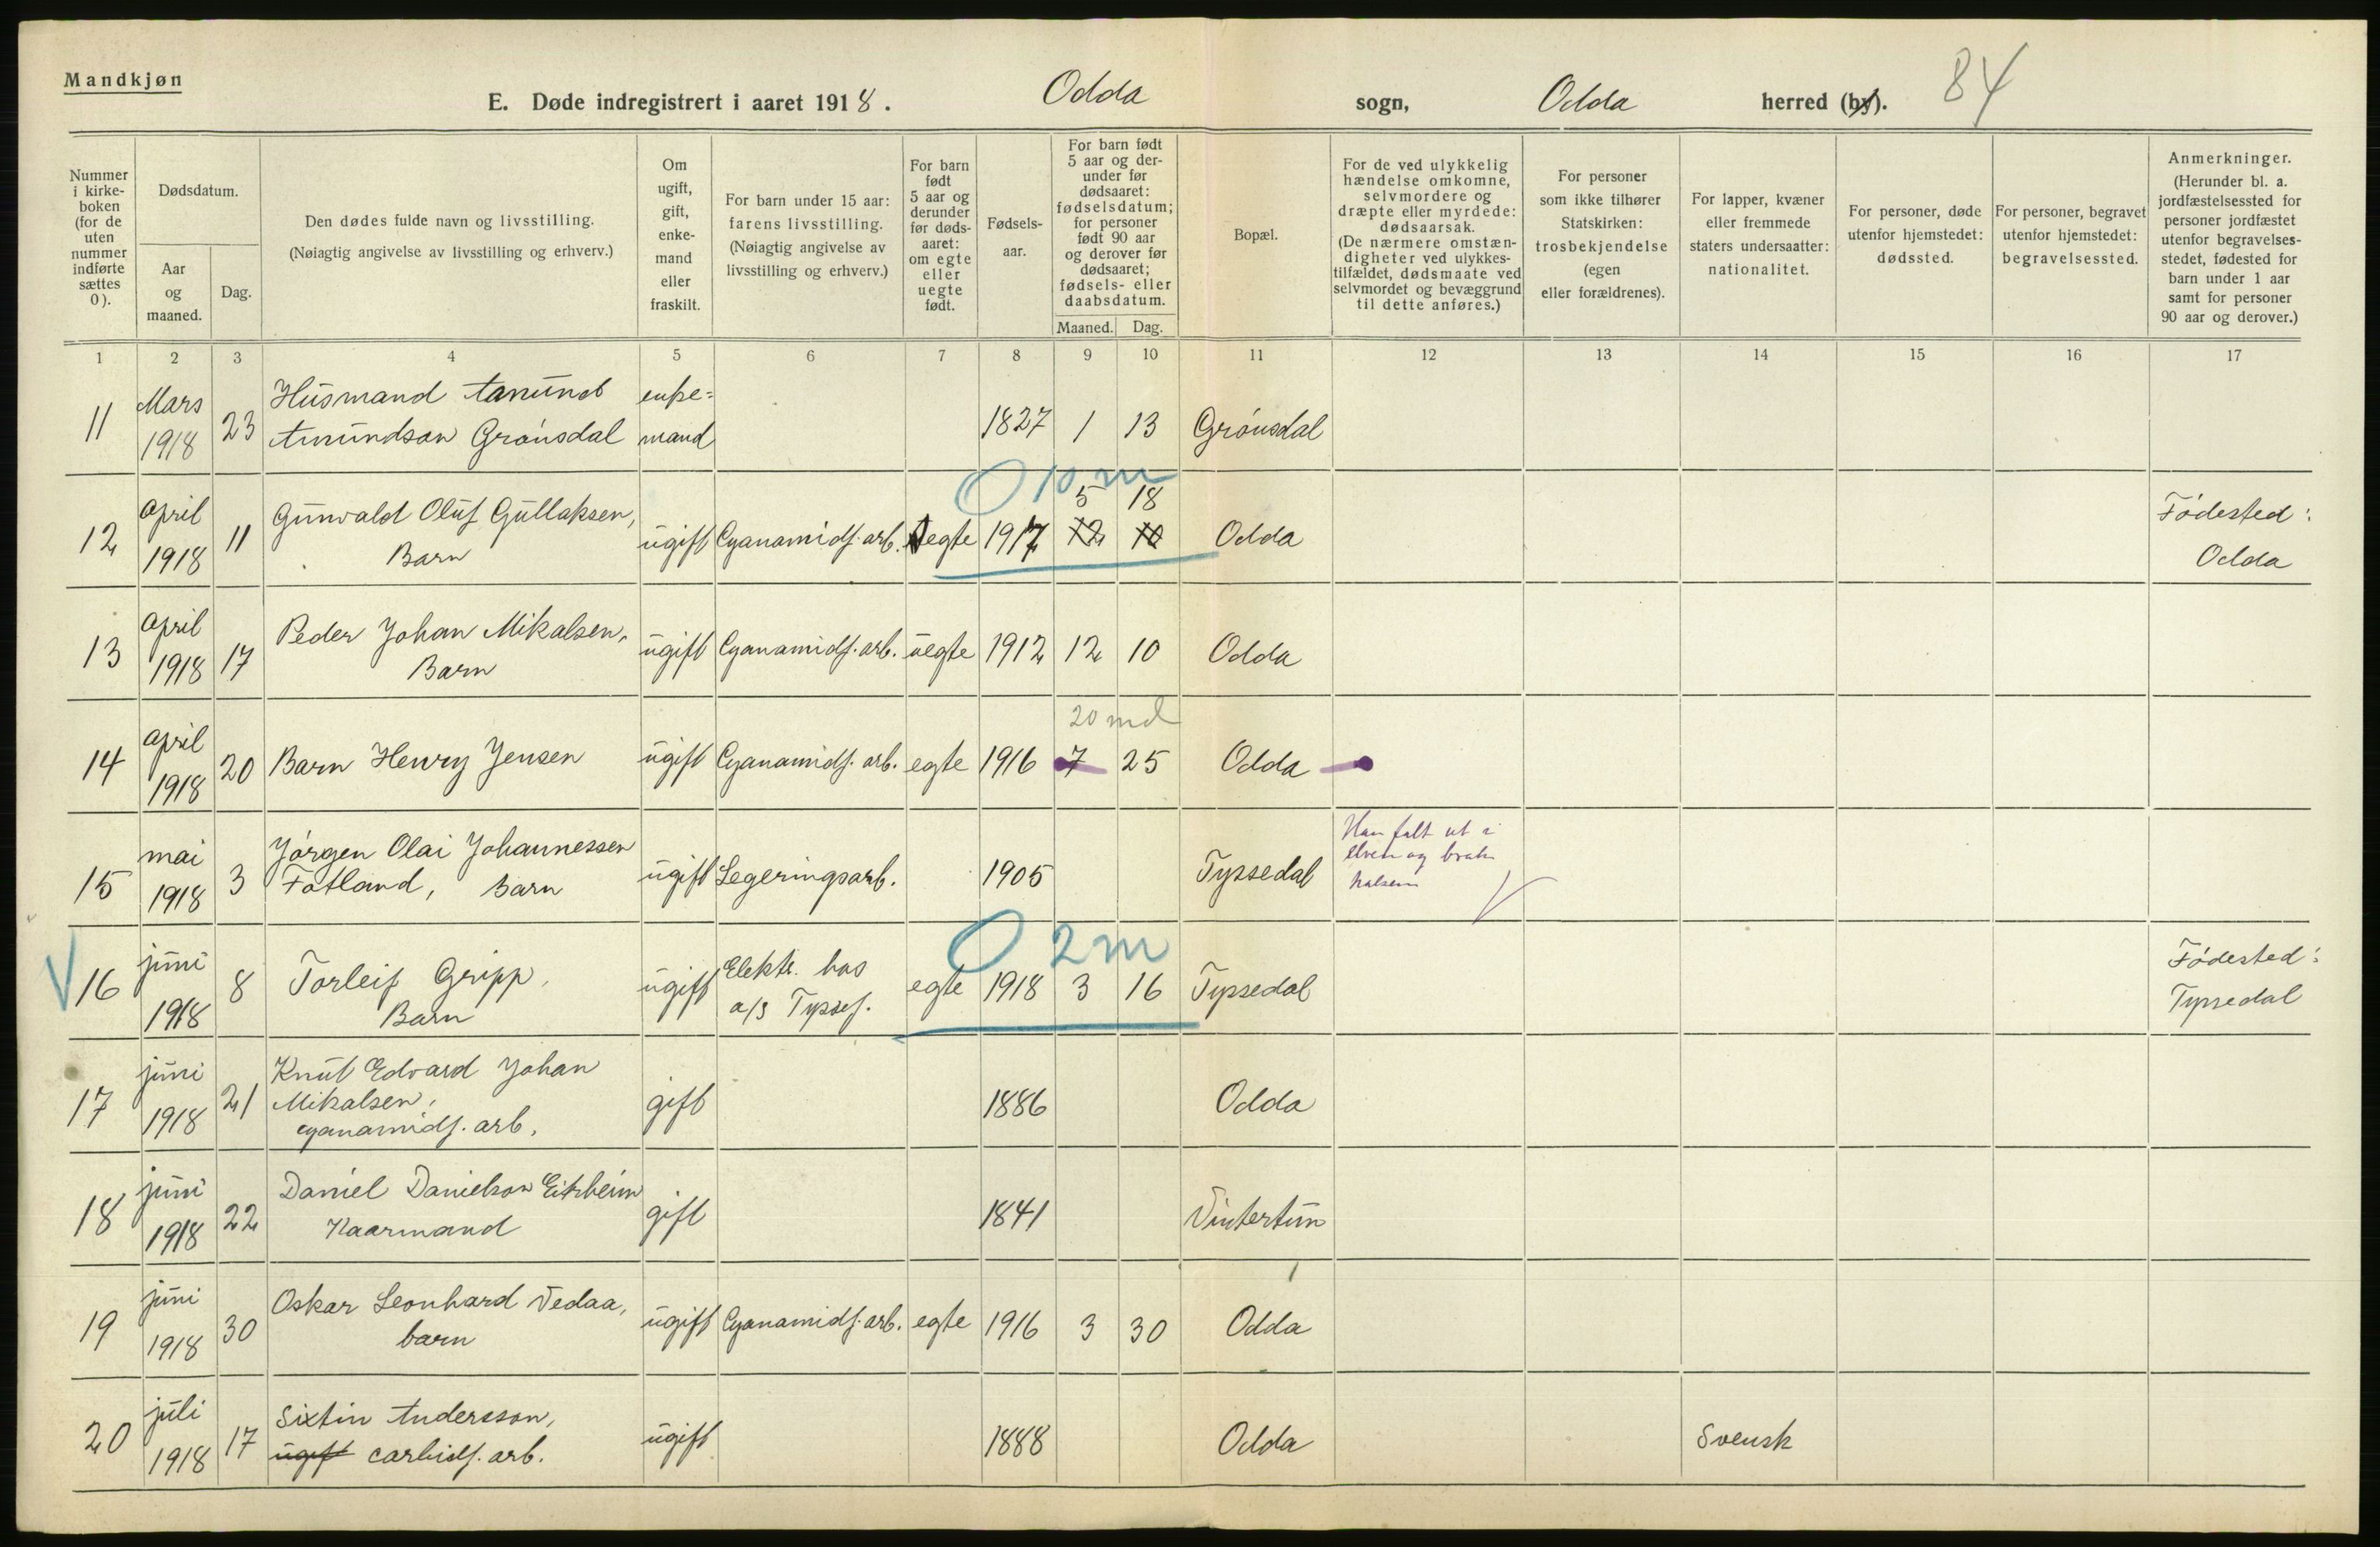 Mandkjøn
E. Døde indregistrert i aaret 1918. Odda sogn, Odda herred (by). 84
Nummer i kirke-boken (for de uten nummer indførte sættes 0).
Dødsdatum.
Aar og maaned.
Dag.
Den dødes fulde navn og livsstilling.
(Nøiagtig angivelse av livsstilling og erhverv.)
Om ugift, gift, enke-mand eller fraskilt.
For barn under 15 aar: farens livsstilling. (Nøiagtig angivelse av livsstilling og erhverv.)
For barn født 5 aar og derunder før døds-aaret: om egte eller uegte født.
Fødsels-aar.
For barn født 5 aar og der-under før dødsaaret: fødselsdatum; for personer født 90 aar og derover før dødsaaret; fødsels- eller daabsdatum.
Maaned. Dag.
Bopæl.
For de ved ulykkelig hændelse omkomne, selvmordere og dræpte eller myrdede: dødsaarsak. (De nærmere omstæn-digheter ved ulykkes-tilfældet, dødsmaate ved selvmordet og bevæggrund til dette anføres.)
For personer som ikke tilhører Statskirken: trosbekjendelse (egen eller forældrenes).
For lapper, kvæner eller fremmede staters undersaatter: nationalitet.
For personer, døde utenfor hjemstedet: dødssted.
For personer, begravet utenfor hjemstedet: begravelsessted.
Anmerkninger. (Herunder bl. a. jordfæstelsessted for personer jordfæstet utenfor begravelses-stedet, fødested for barn under 1 aar samt for personer 90 aar og derover.)
1 2 3 4 5 6 7 8 9 10 11 12 13 14 15 16 17
11 Mars 1918 23 Husmand Amund Amundson Grønsdal enke=mand 1827 1 13 Grønsdal
0 10 m
12 april 1918 11 Gunvald Oluf Gullaksen, Barn ugift Cyanamidf. arb. egte 1917 5 18 12 10 Odda Fødested: Odda
13 april 1918 17 Peder Johan Mikalsen, Barn ugift Cyanamidf. arb. uegte 1912 12 10 Odda
20 md
14 april 1918 20 Barn Henry Jensen ugift Cyanamidf. arb. egte 1916 7 25 Odda
15 mai 1918 3 Jørgen Olai Johannessen Fotland, Barn ugift Legeringsarb. 1905 Tyssedal Han falt ut i elven og brak halsen
0 2 m
16 juni 1918 8 Torleif Gripp, Barn ugift Elektr. hos a/s Tyssef. egte 1918 3 16 Tyssedal Fødested: Tyssedal
17 juni 1918 21 Knut Edvard Johan Mikalsen, cyanamidf. arb. gift 1886 Odda
18 juni 1918 22 Daniel Danielson Eitrheim Kaarmand gift 1841 Vintertun
19 juni 1918 30 Oskar Leonhard Vedaa, barn ugift Cyanamidf. arb. egte 1916 3 30 Odda
20 juli 1918 17 Sixtin Andersson, ugift carbidf. arb. ugift 1888 Odda Svensk